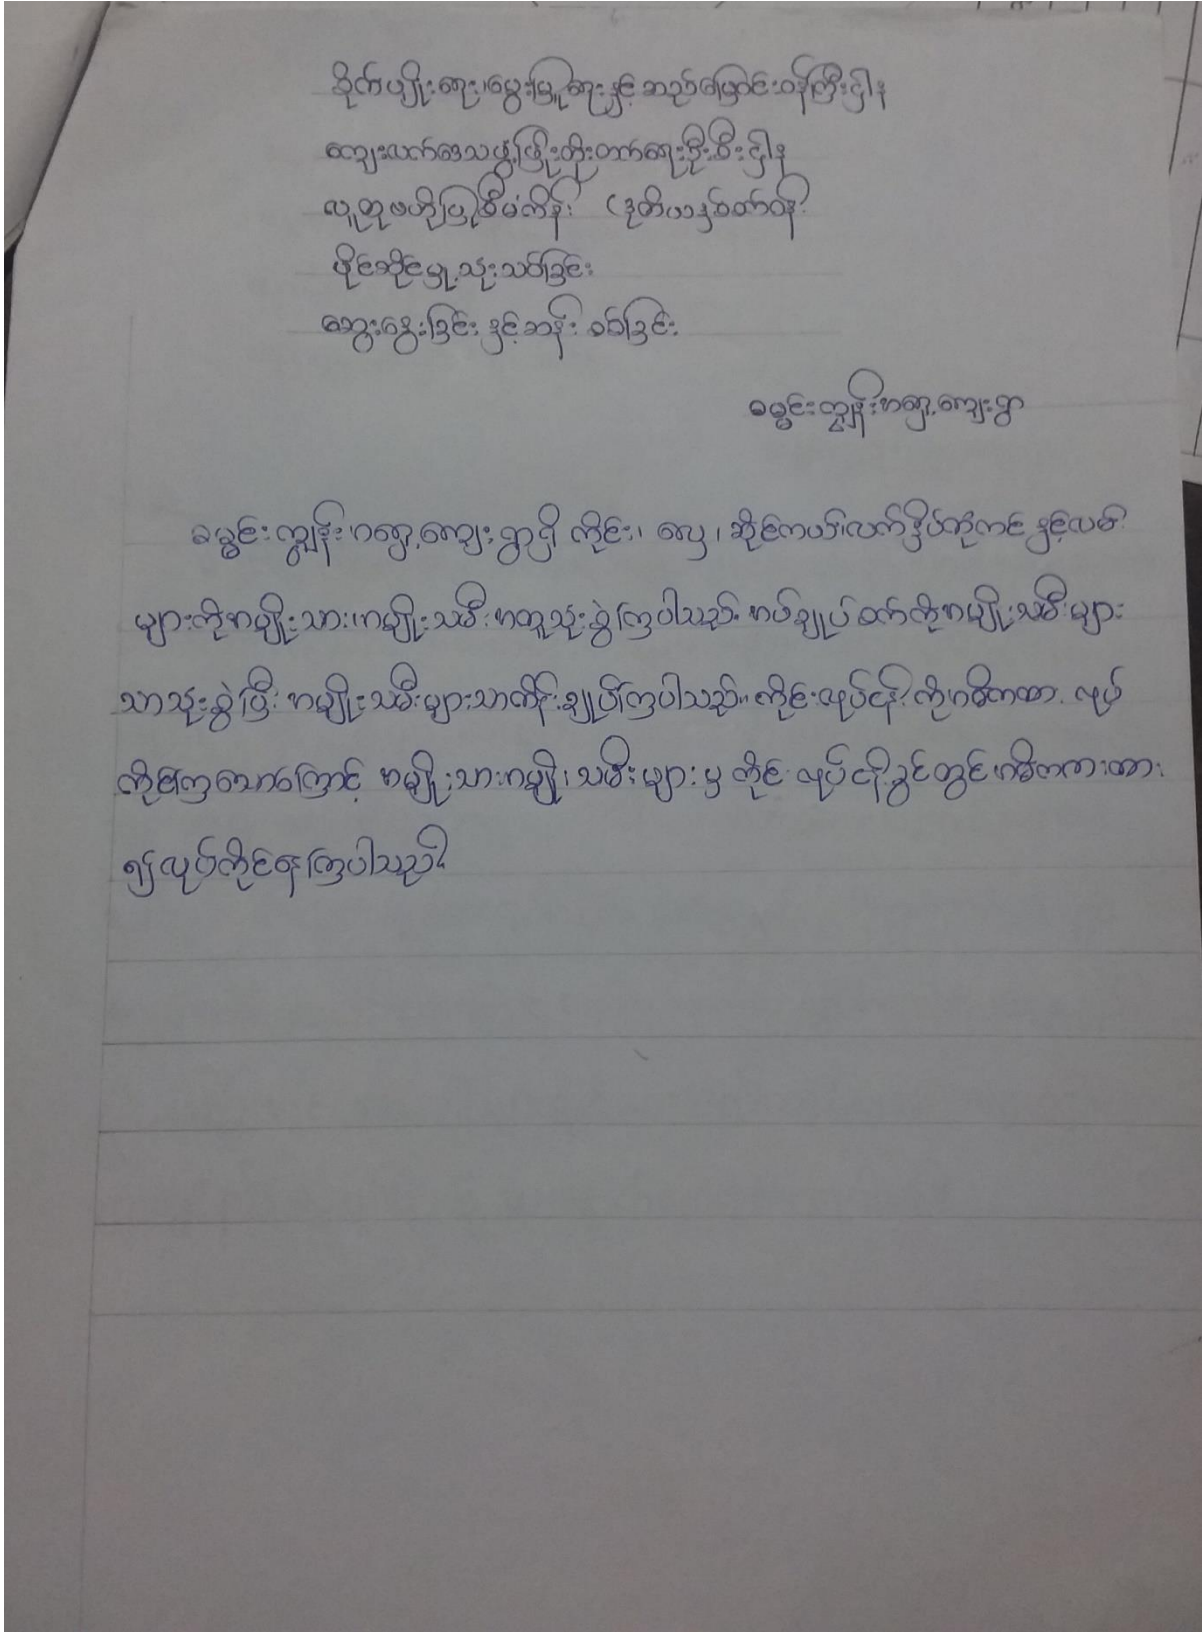 စိုက်ပျိုးရေး၊မွေးမြူရေးနှင့်ဆည်မြောင်းဝန်ကြီးဌာန
ကျေးလက်ဒေသဖွံ့ဖြိုးတိုးတက်ရေးဦးစီးဌာန
လူထုဗဟိုပြုစီမံကိန်း (ဒုတိယနှစ်ပတ်ဝန်း
ပိုင်ဆိုင်မှု့သုံးသပ်ခြင်း
ဆွေးနွေးခြင်းနှင့်ဆန်းစစ်ခြင်း
ခမွင်းကျွန်းအရှေ့ကျေးရွာ
ခမွင်းကျွန်းအရှေ့ကျေးရွာရှိ ကိုင်း၊ လှေ၊ ဆိုင်ကယ်၊လက်နှိပ်တုံကင်နှင့်လမ်း
များကိုအမျိုးသား၊အမျိုးသမီးအတူသုံးစွဲကြပါသည်။ အပ်ချုပ်စက်ကိုအမျိုးသမီးများ
သာသုံးစွဲပြီး အမျိုးသမီးများသာထိန်းချုပ်ကြပါသည်။ ကိုင်းလုပ်ငန်းကိုအဓိကထား လုပ်
ကိုင်ကြသောကြောင့် အမျိုးသားအမျိုးသမီးများမှ ကိုင်းလုပ်ငန်းခွင်တွင်အဓိကထား
၍လုပ်ကိုင်နေကြပါသည်။